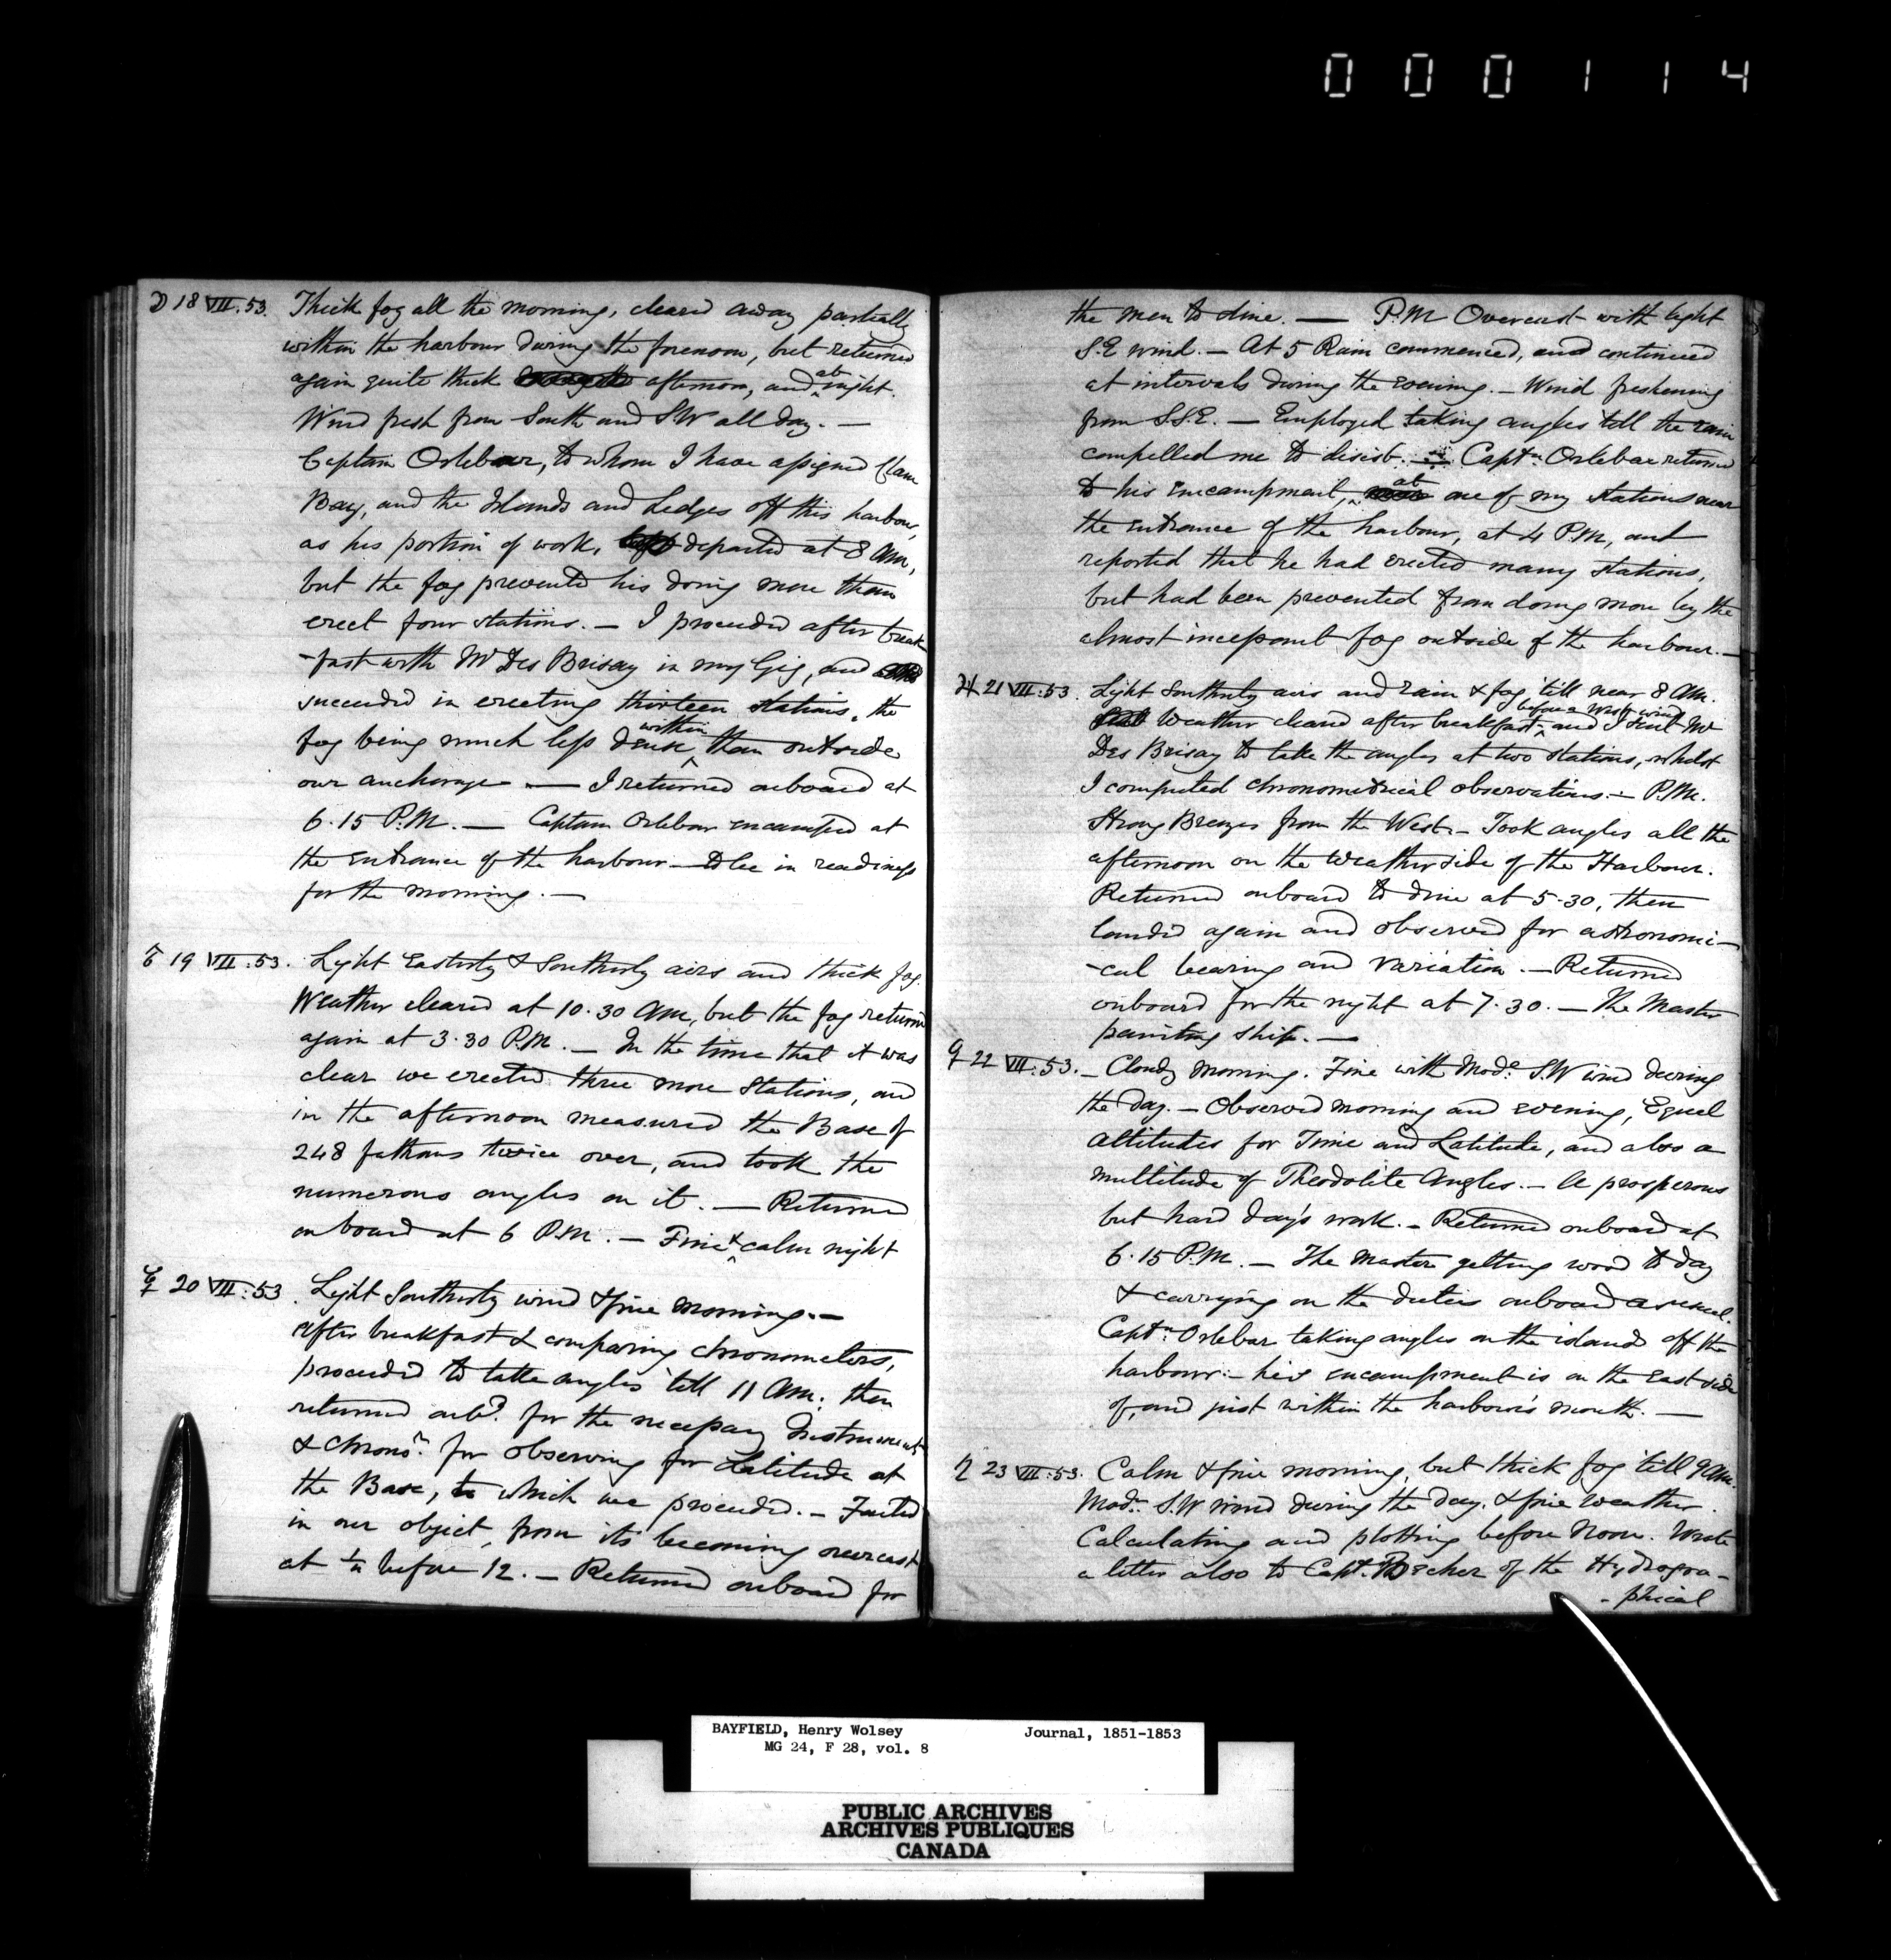 000114
☽ 18 VII:53. Thick fog all the morning, cleared away partially
within the harbour during the forenoon, but returned
again quite thick afternoon, and at night.
Wind fresh from South and S.W all day. —
Captain Orlebar, to whom I have assigned Clam
Bay, and the Islands and Ledges off this harbour,
as his portion of work, left departed at 8 AM,
but the fog prevented his doing more than
erect four stations. — I proceeded after break
-fast with Mr Des Brisay in my Gig, and
succeeded in erecting thirteen stations, the
fog being much less dense within than outside
our anchorage — I returned onboard at
6.15 P.M. — Captain Orlebar encamped at
the entrance of the harbour — to be in readiness
for the morning. —
19 VII:53. Light Easterly & Southerly airs and thick fog.
Weather cleared at 10.30 AM, but the fog returned
again at 3.30 P.M. — In the time that it was
clear we erected three more Stations, and
in the afternoon measured the Base of
248 fathoms twice over, and took the
numerous angles on it. — Returned
on board at 6 P.M. — Fine & calm night
☿ 20 VII:53. Light Southerly wind & fine morning. —
After breakfast & comparing chronometers,
proceeded to take angles till 11 AM; then
returned onbd. for the necessary Instruments
& chronr. for observing for Latitude at
the Base, to which we proceeded. — Failed
in our object, from its becoming overcast
at ¼ before 12. — Returned onboard for
the men to dine. — P.M Overcast with light
S.E wind. — At 5 Rain commenced, and continued
at intervals during the evening. — Wind freshening
from S.S.E. — Employed taking angles till the rain
compelled me to desist. — Captn. Orlebar returned
to his encampment, at one of my stations near
the entrance of the harbour, at 4 P.M, and
reported that he had erected many stations,
but had been prevented from doing more by the
almost incessant fog outside of the harbour. —
♃ 21 VII:53. Light Southerly airs and rain & fog till near 8 AM.
Weather cleared after breakfast before a West wind and I sent Mr
Des Brisay to take the angles at two stations, whilst
I computed chronometrical observations. — P.M.
Strong Breezes from the West. — Took angles all the
afternoon on the Weather side of the Harbour.
Returned onboard to dine at 5.30, then
landed again and observed for astronomi-
-cal bearing and Variation. — Returned
onboard for the night at 7.30. — The Master
painting ship. —
♀ 22 VII:53. — Cloudy morning. Fine with Mode. S.W wind during
the day. — Observed morning and evening, Equal
altitudes for Time and Latitude, and also a
multitude of Theodolite Angles. — A prosperous
but hard day's work. — Returned onboard at
6.15 P.M. — The Master getting wood to day
& carrying on the duties onboard as usual.
Captn. Orlebar taking angles on the islands off the
harbour: — his encampment is on the East side
of, and just within the harbour's mouth. —
♄ 23 VII:53. Calm & fine morning, but thick fog till 9 AM.
Modr. S.W Wind during the day. & fine weather.
Calculating and plotting before Noon. Wrote
a letter also to Capt. Becher of the Hydrogra-
-phical
BAYFIELD, Henry Wolsey Journal, 1851-1853
MG 24, F 28, vol. 8
PUBLIC ARCHIVES
ARCHIVES PUBLIQUES
CANADA